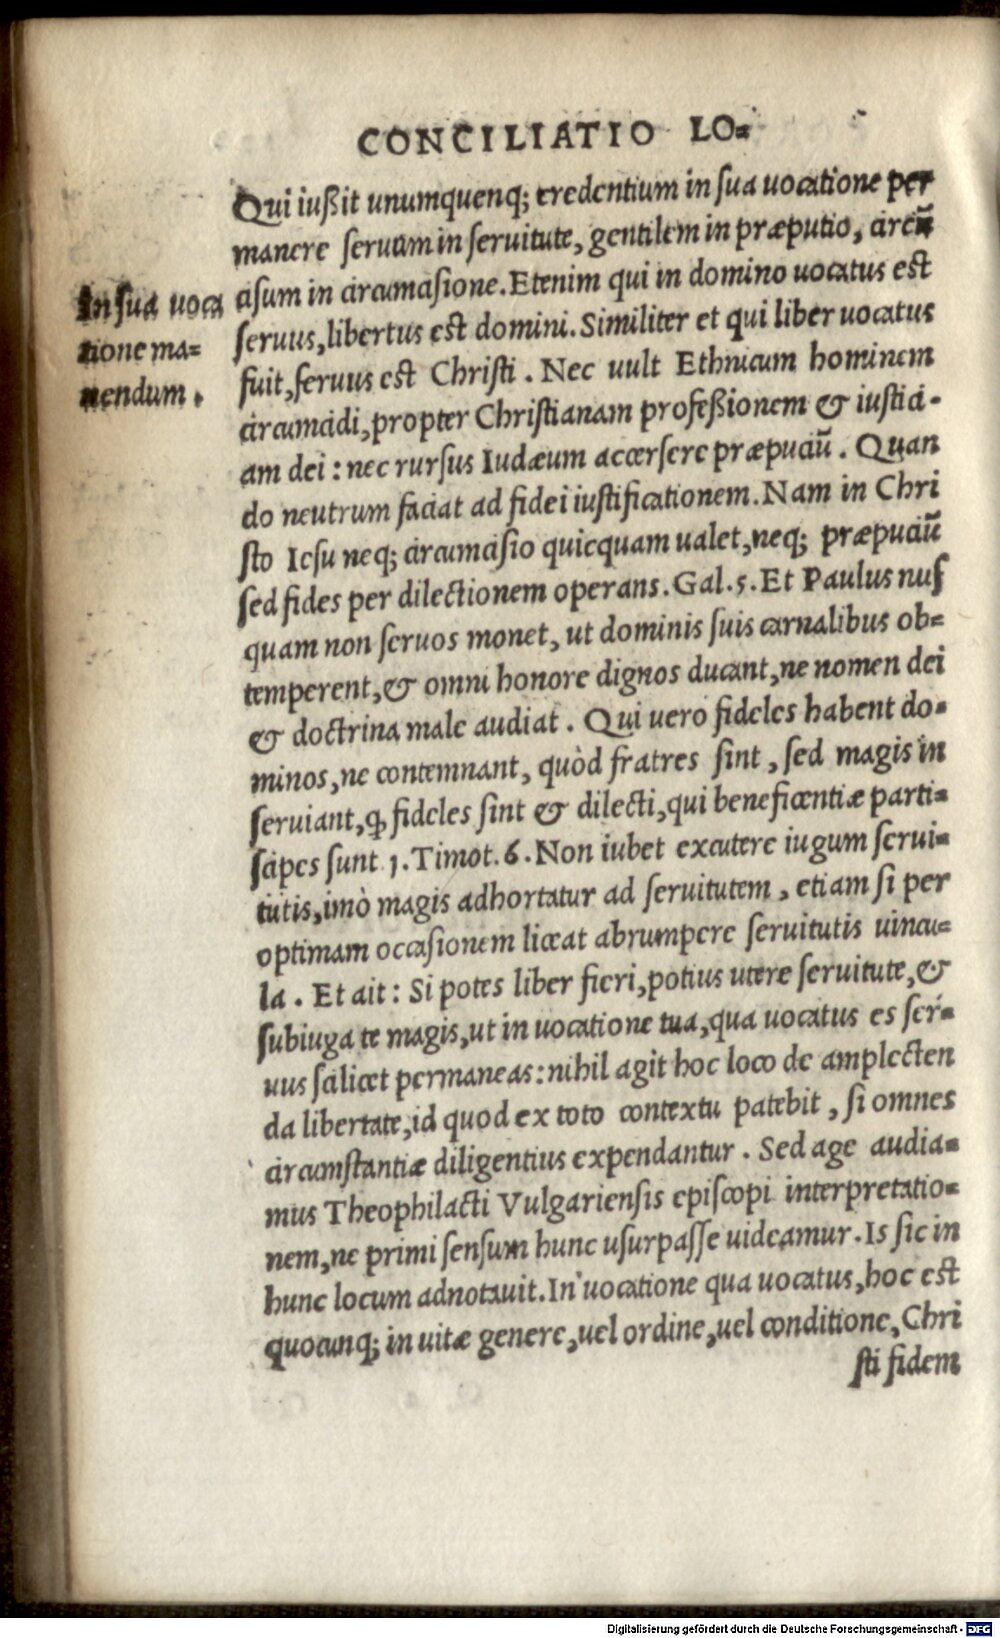 CONCILIATIO LO=
Qui iußit unumquenq; credentium in sua uocatione per
manere seruum in seruitute, gentilem in præputio, circũ
In sua uoca
tione ma=
nendum.
cisum in circumcisione. Etenim qui in domino uocatus est
seruus, libertus est domini. Similiter et qui liber uocatus
fuit, seruus est Christi. Nec uult Ethnicum hominem
circumcidi, propter Christianam profeßionem & iustici-
am dei: nec rursus Iudæum accersere præpuciũ. Quan
do neutrum faciat ad fidei iustificationem. Nam in Chri
sto Iesu neq; circumcisio quicquam ualet, neq; præpuciũ
sed fides per dilectionem operans. Gal. 5. Et Paulus nus
quam non seruos monet, ut dominis suis carnalibus ob=
temperent, & omni honore dignos ducant, ne nomen dei
& doctrina male audiat. Qui uero fideles habent do=
minos, ne contemnant, quòd fratres sint, sed magis in
seruiant, ꝙ fideles sint & dilecti, qui beneficentiæ parti=
scipes sunt 1. Timot. 6. Non iubet excutere iugum serui=
tutis, imò magis adhortatur ad seruitutem, etiam si per
optimam occasionem liceat abrumpere seruitutis uincu=
la. Et ait: Si potes liber fieri, potius utere seruitute, &
subiuga te magis, ut in uocatione tua, qua uocatus es ser=
uus scilicet permaneas: nihil agit hoc loco de amplecten
da libertate, id quod ex toto contextu patebit, si omnes
circumstantiæ diligentius expendantur. Sed age audia=
mus Theophilacti Vulgariensis episcopi interpretatio=
nem, ne primi sensum hunc usurpasse uideamur. Is sic in
hunc locum adnotauit. In uocatione qua uocatus, hoc est
quocunq; in uitæ genere, uel ordine, uel conditione, Chri
sti fidem
Digitalisierung gefördert durch die Deutsche Forschungsgemeinschaft - DFG